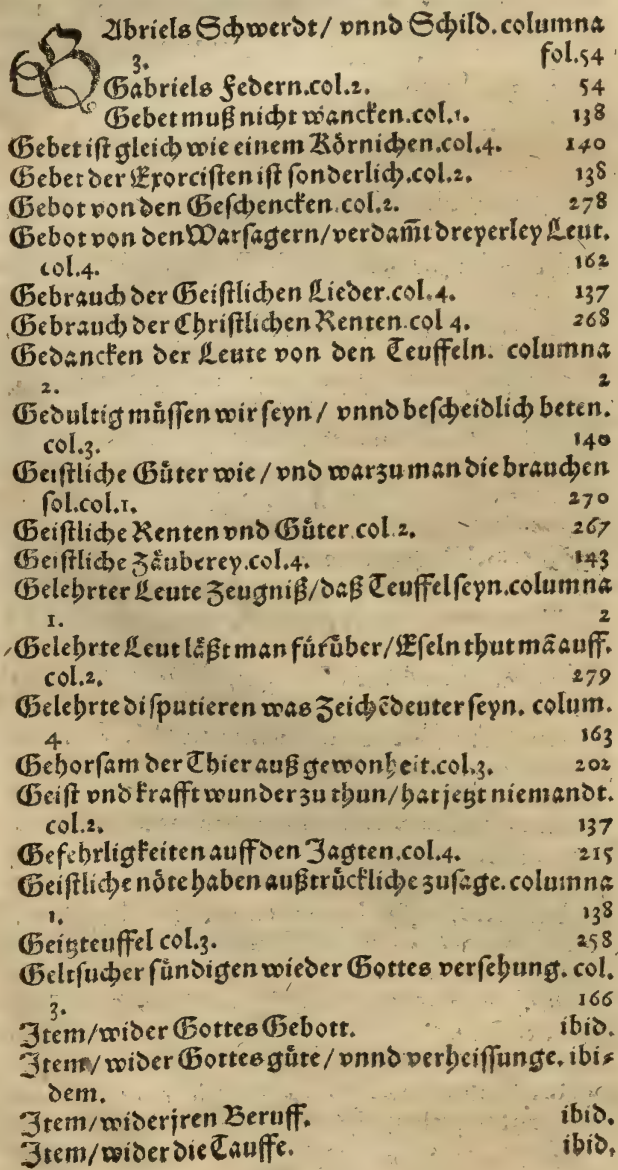 GAbriels Schwerdt/ vnnd Schild. columna
3. fol.54
Gabriels Federn.col.2. 54
Gebet muß nicht wancken.col.1. 138
Gebet ist gleich wie einem Körnichen.col.4. 140
Gebet der Exorcisten ist sonderlich.col.2. 138
Gebot von den Geschencken.col.2. 278
Gebot von den Warsagern/verdam̃t dreyerley Leut.
col.4. 162
Gebrauch der Geistlichen Lieder.col.4. 137
Gebrauch der Christlichen Renten.col 4. 268
Gedancken der Leute von den Teuffeln. columna
2. 2
Gedultig müssen wir seyn/ vnnd bescheidlich beten.
col.3. 140
Geistliche Güter wie/ vnd warzu man die brauchen
sol.col.1. 270
Geistliche Renten vnd Güter.col.2. 267
Geistliche Zäuberey.col.4. 143
Gelehrter Leute Zeugniß/daß Teuffel seyn.columna
1. 2
Gelehrte Leut läßt man fürüber/Eseln thut mã auff.
col.2. 279
Gelehrte disputieren was Zeichẽdeuter seyn. colum.
4. 163
Gehorsam der Thier auß gewonheit.col.3. 202
Geist vnd krafft wunder zu thun/hat jetzt niemandt.
col.2. 137
Gefehrligkeiten auff den Jagten.col.4. 215
Geistliche nöte haben außtrückliche zusage.columna
1. 138
Geitzteuffel col.3. 258
Geltsucher sündigen wieder Gottes versehung. col.
3. 166
Item/wider Gottes Gebott. ibid.
Item/wider Gottes güte/ vnnd verheissunge. ibi⸗
dem.
Item/wider jren Beruff. ibid.
Item/wider die Tauffe. ibid.